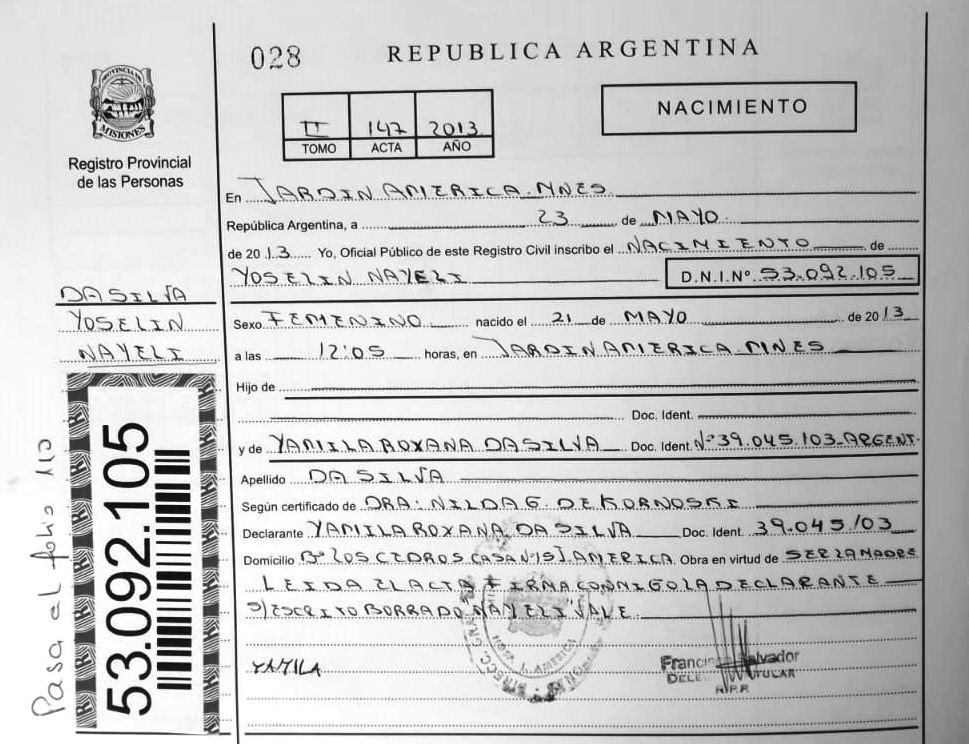 028 REPUBLICA ARGENTINA
PROVINCIA DE
MISIONES
Registro Provincial
de las Personas
II 147 2013
TOMO ACTA AÑO
NACIMIENTO
En JARDIN AMERICA. MNES.
República Argentina, a 23 de MAYO
de 2013 Yo, Oficial Público de este Registro Civil inscribo el NACIMIENTO de
YOSELIN NAYELI D.N.I.Nº 53.092.105
DA SILVA
YOSELIN
NAYELI
Sexo FEMENINO nacido el 21 de MAYO de 2013
a las 12:05 horas, en JARDIN AMERICA. MNES
Hijo de
Doc. Ident.
y de YAMILA ROXANA DA SILVA Doc. Ident. Nº 39.045.103_ARGENT.
Apellido DA SILVA
Según certificado de DRA: NILDA G. DE KORNOSKI
Declarante YAMILA ROXANA DA SILVA Doc. Ident. 39.045.103
Domicilio Bº LOS CEDROS CASA Nº15 J. AMERICA. Obra en virtud de SER LA MADRE
LEIDA EL ACTA FIRMA CONMIGO LA DECLARANTE
S/ESCRITO BORRADO "NAYELI" VALE.
YAMILA
J. AMERICA
Francis Salvador
TITULAR
R.P.P.
53.092.105
Pasa al folio 110